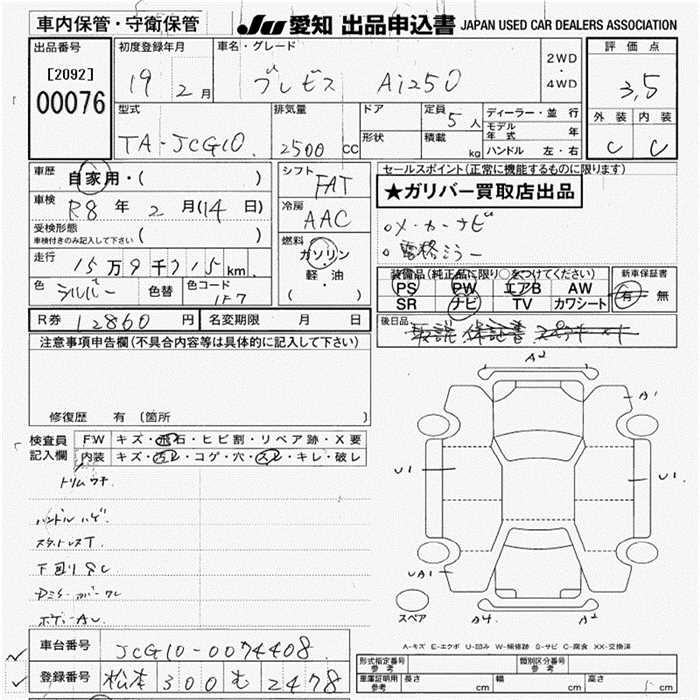 車内保管・守衛保管
JU 愛知 出品申込書 JAPAN USED CAR DEALERS ASSOCIATION
出品番号 [2092] 00076
初度登録年月 19 2月
車名・グレード ブレビス Ai250
2WD・4WD
評価点 3,5
外装 C 内装 C
型式 TA-JCG10
排気量 2500cc
ドア
形状
定員 5人
積載 kg
ディーラー・並行
モデル年式 年
ハンドル 左・右
車歴 自家用・( )
車検 R8年 2月(14日)
受検形態
車検付きのみ記入して下さい ( )
走行 15万9千715km
色 シルバー 色替 色コード 1F7
シフト FAT
冷房 AAC
燃料 ガソリン・軽・油 ( )
セールスポイント(正常に機能するものに限ります)
★ガリバー買取店出品
○メーカーナビ
○電格ミラー
装備品(純正品に限り○をつけてください)
PS PW エアB AW
SR ナビ TV カワシート
新車保証書 有・無
R券 12860円 名変期限 月 日
後日品 取説 保証書
注意事項申告欄(不具合内容等は具体的に記入して下さい)
修復歴 有 (箇所
検査員記入欄
FW キズ・飛石・ヒビ割・リペア跡・X要
内装 キズ・汚レ・コゲ・穴・スレ・キレ・破レ
トリムウキ
ハンドルハゲ
下回りサビ
A2
A1
U1
U1
UA1
A4
A2
スペア
A-キズ E-エクボ U-凹み W-補修跡 S-サビ C-腐食 XX-交換済
車台番号 JCG10-0074408
登録番号 松本 300 む 2478
形式指定番号 参考
類別区分番号 参考
車庫証明用 参考 長さ cm 幅 cm 高さ cm